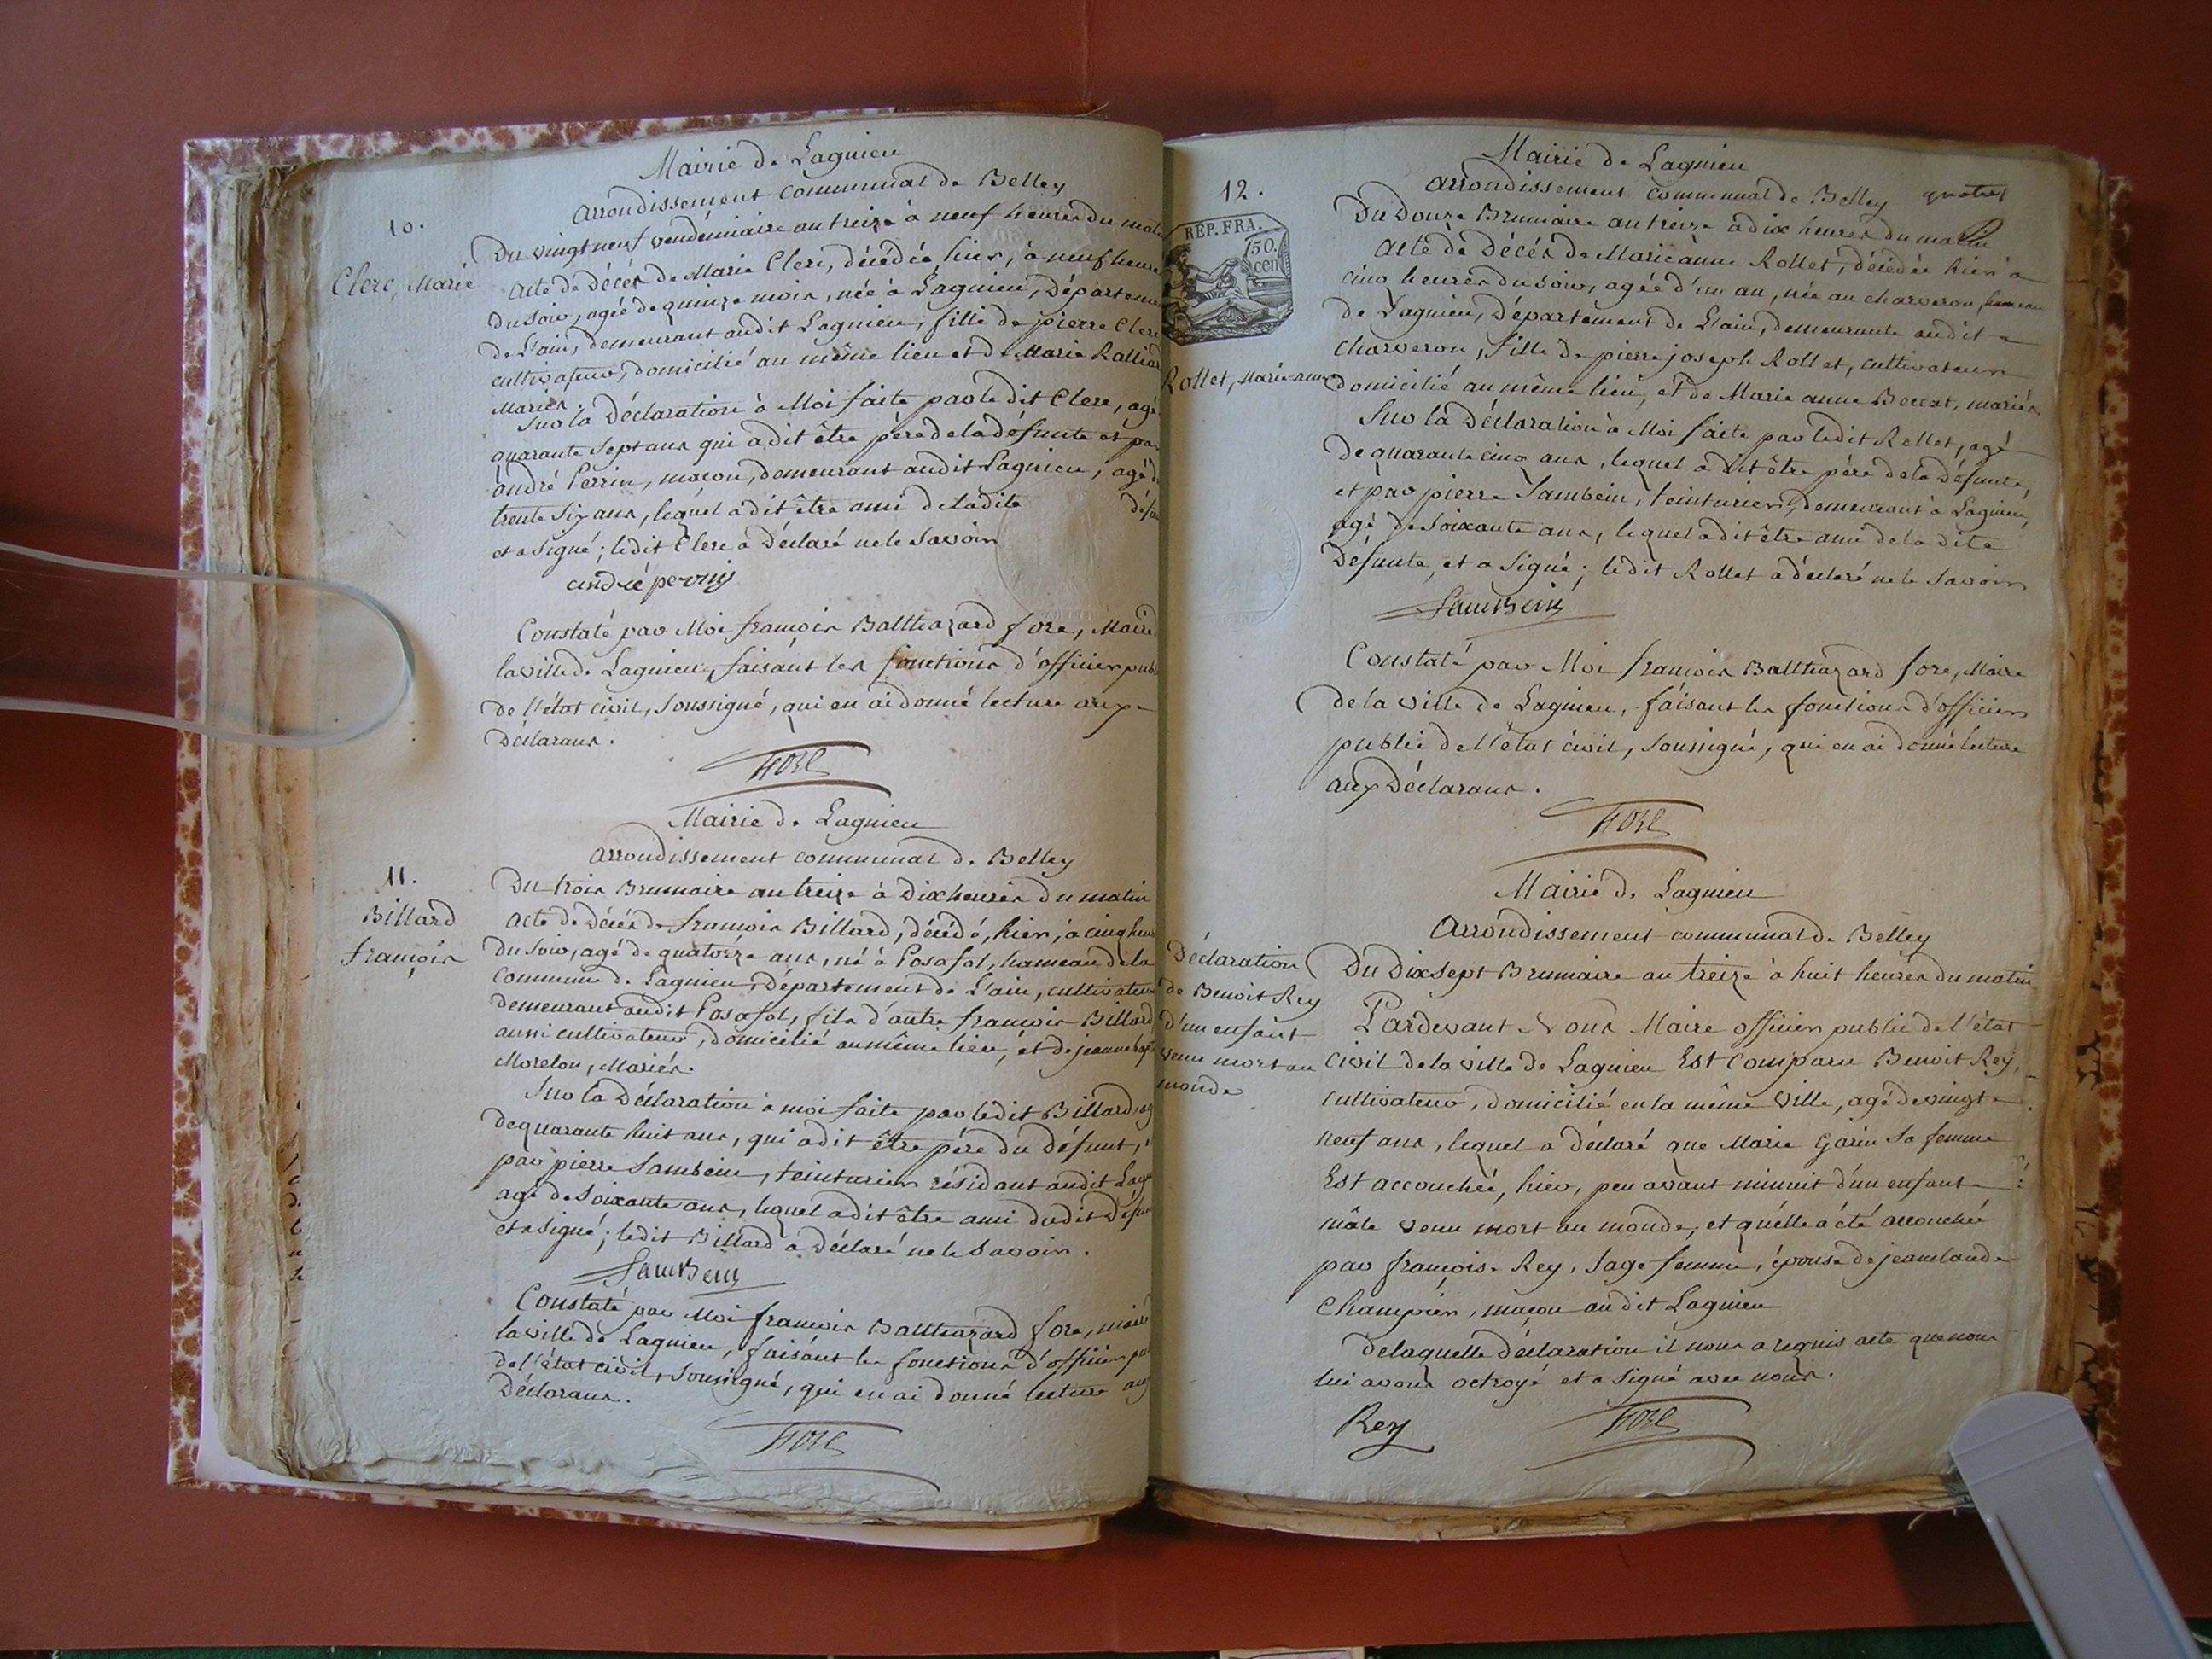 Mairie de Lagnieu
Arrondissement communal de Belley
10.
Du vingt neuf vendémiaire an treize à neuf heures du matin
Clerc, Marie
Acte de Décès de Marie Clerc, décédée hier, à neuf heures
du soir, agée de quinze mois, née à Lagnieu, Département
de L'ain, demeurant audit Lagnieu, fille de pierre Clerc
cultivateur, domicilié au même lieu et de Marie
Mariés.
Sur la Déclaration à Moi faite par le dit Clerc, agé
quarante Sept ans qui a dit être père de la défunte et par
andré Perrin, maçon, demeurant audit Lagnieu, agé de
trente Six ans, lequel a dit être ami de ladite défun
et a signé ; ledit Clerc a Déclaré ne le Savoir
andré perrin
Constaté par Moi françois Balthazard fore, Maire
la ville de Lagnieu, faisant les fonctions d'officier pub
de l'état civil, Soussigné, qui en ai donné lecture aux
Déclarans.
FORE
Mairie de Lagnieu
Arrondissement communal de Belley
11.
Du trois Brumaire an treize à Dix heures du matin
Billard
françois
Acte de Décès de françois Billard, décédé, hier, à cinq heur
du soir, agé de quatorze ans, né à Posafol, hameau de la
Commune de Lagnieu, Département de L'ain, cultivateur
demeurant audit Posafol, fils d'autre françois Billard
aussi cultivateur, domicilié au même lieu, et de jeanne
Morelon, Mariés.
Sur la Déclaration à moi faite par ledit Billard, ag
de quarante huit ans, qui a dit être père du défunt,
par pierre Sambein, teinturier résidant audit Lagn
agé de Soixante ans, lequel a dit être ami dudit Défun
et a signé ; ledit Billard a Déclaré ne le Savoir.
SamBein
Constaté par Moi françois Balthazard fore, maire
la ville de Lagnieu, faisant les fonctions d'officier pu
de l'état civil, Soussigné, qui en ai donné lecture aux
Déclarans.
FORE
Mairie de Lagnieu
Arrondissement communal de Belley
quatre
12.
REP. FRA.
50.
cen
Rollet, Marie-anne
Du Douze Brumaire an treize à dix heures du matin
Acte de Décès de Marie anne Rollet, décédée hier à
cinq heures du soir, agée d'un an, née au charveron, hameau
de Lagnieu, Département de L'ain, demeurante audit
charveron, fille de pierre joseph Rollet, cultivateur
domicilié au même lieu, et de Marie anne, mariés.
Sur la Déclaration à Moi faite par ledit Rollet, agé
de quarante cinq ans, lequel a dit être père de la Défunte,
et par pierre Sambein, teinturier, demeurant à Lagnieu,
agé de Soixante ans, lequel a dit être ami de la dite
Défunte, et a Signé ; ledit Rollet a déclaré ne le Savoir
SamBein
Constaté par Moi françois Balthazard fore, Maire
de la ville de Lagnieu, faisant les fonctions d'officier
public de l'état civil, Soussigné, qui en ai donné lecture
aux Déclarans.
FORE
Mairie de Lagnieu
Arrondissement communal de Belley
Déclaration
de Benoit Rey
d'un enfant
venu mort au
monde
Du Dix sept Brumaire an treize à huit heures du matin
Pardevant Nous Maire officier public de l'état
Civil de la ville de Lagnieu Est Comparu Benoit Rey,
Cultivateur, domicilié en la même Ville, agé de vingt
neuf ans, lequel a Déclaré que Marie Garin Sa femme
Est accouchée, hier, peu avant minuit d'un enfant
mâle venu mort au monde, et qu'elle a été accouchée
par françoise Rey, Sage femme, épouse de jean claude
Champier, maçon audit Lagnieu
De laquelle Déclaration il nous a requis acte que nous
lui avons octroyé et a Signé avec nous.
Rey
FORE